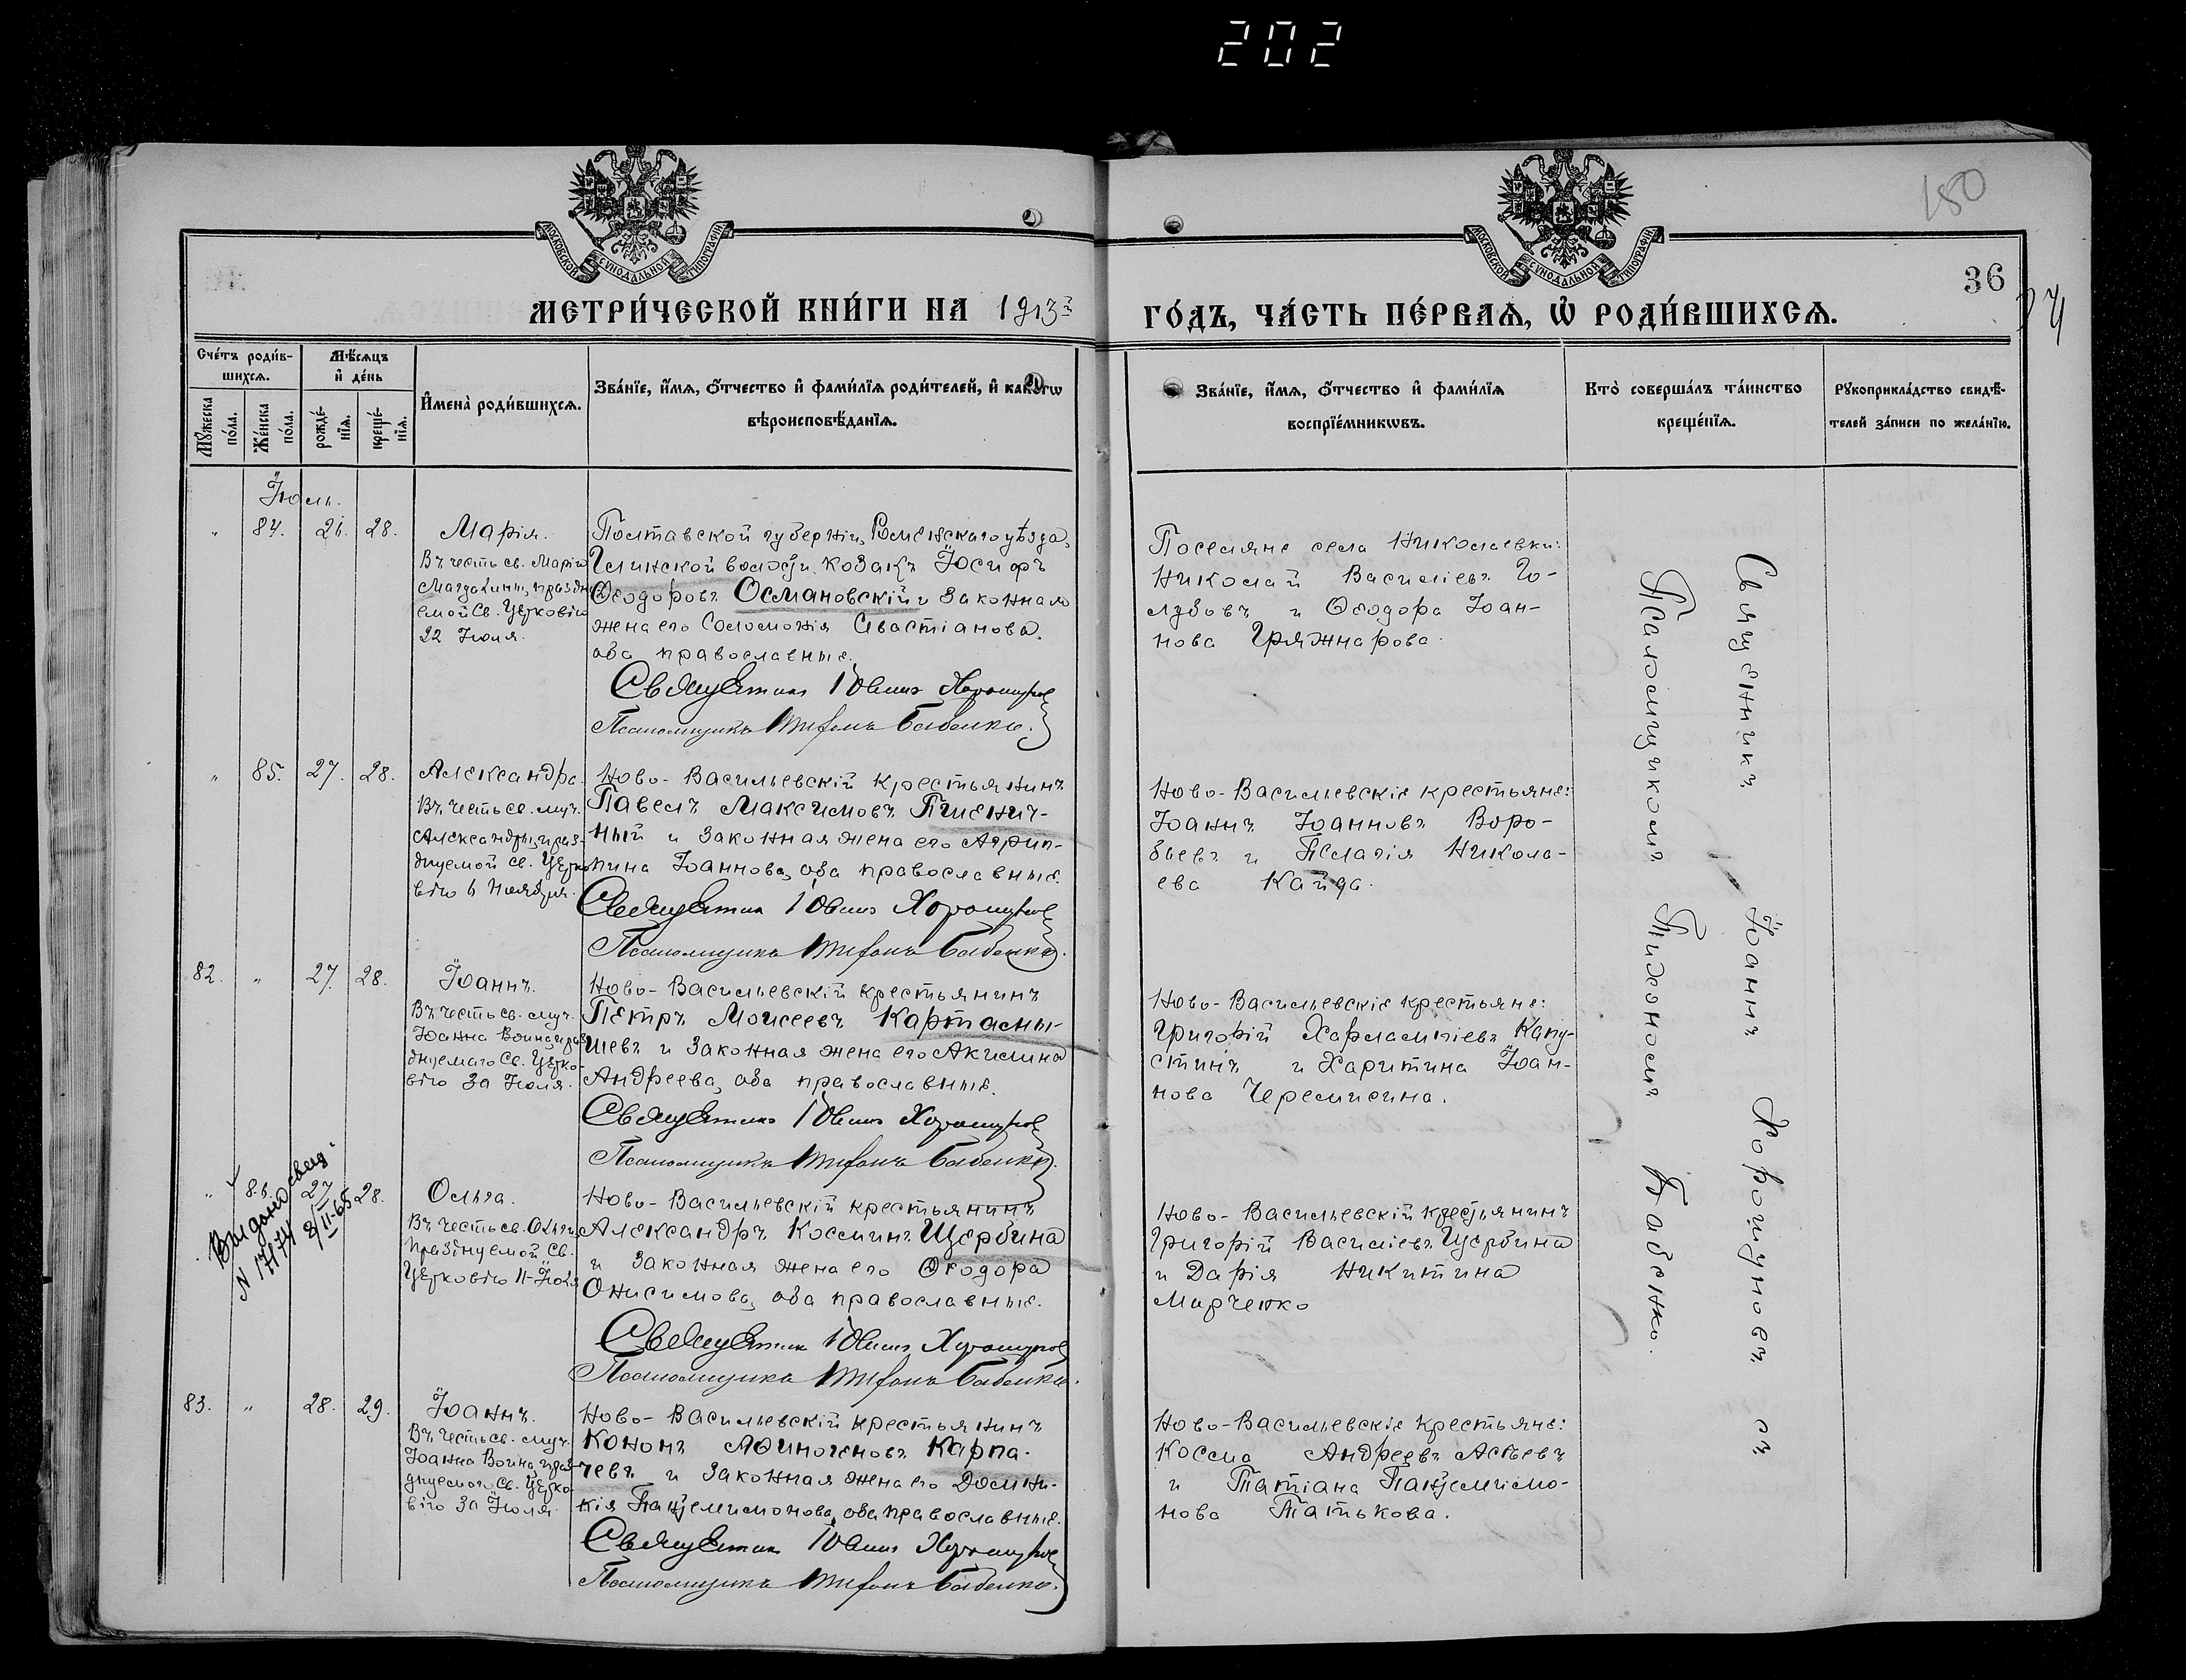 202
180
36
МОСКОВСКОЙ СѴНОДАЛЬНОЙ ТИПОГРАФІИ
МОСКОВСКОЙ СѴНОДАЛЬНОЙ ТИПОГРАФІИ
МЕТРИ́ЧЕСКОЙ КНИ́ГИ НА 1913й
ГО́ДЪ, ЧА́СТЬ ПЕ́РВАѦ, Ѽ РОДИ́ВШИХСѦ.
Сче́тъ роди́в-
шихсѧ.
Мꙋ́жеска
по́ла.
Же́нска
по́ла.
Мѣ́сѧцъ
и҆ де́нь
рожде́-
нїѧ.
креще́-
нїѧ.
И҆мена̀ роди́вшихсѧ.
Зва́нїе, и҆́мѧ, ѻ҆́тчество и҆ фами́лїѧ роди́телей, и҆ како́гѡ
вѣроисповѣ́данїѧ.
Зва́нїе, и҆́мѧ, ѻ҆́тчество и҆ фами́лїѧ
воспрїе́мникѡвъ.
Кто̀ соверша́лъ та́инство
креще́нїѧ.
Рꙋкоприкла́дство свидѣ́-
телей за́писи по жела́нїю.
Іюль.
" 84. 21. 28.
Марія.
Въ честь св. Маріи
Магдалины, праздну-
емой Св. Церковію
22 Іюля.
Полтавской губерніи, Роменскаго уѣзда,
волости козакъ Іосифъ
Ѳеодоровъ Османовскій и законная
жена его Соломонія Сивастіанова,
оба православные.
Священникъ Іоаннъ Хорошуновъ
Псаломщикъ Тихонъ Бабенко.
Поселяне села Николаевки:
Николай Василіевъ Го-
лубовъ и Ѳеодора Іоан-
нова Гряжнарова.
" 85. 27. 28.
Александра.
Въ честь св. муч.
Александры, праз-
днуемой св. Церко-
вію 6 Ноября.
Ново-Васильевскій крестьянинъ
Павелъ Максимовъ Пшенич-
ный и законная жена его Агрип-
пина Іоаннова, оба православные.
Священникъ Іоаннъ Хорошуновъ
Псаломщикъ Тихонъ Бабенко.
Ново-Васильевскіе крестьяне:
Іоаннъ Іоанновъ Воро-
бьевъ и Пелагія Никола-
ева Кайда.
82. " 27. 28.
Іоаннъ.
Въ честь св. муч.
Іоанна Воина, праз-
днуемаго Св. Церко-
вію 30 Іюля.
Ново-Васильевскій крестьянинъ
Петръ Моисеевъ Картамы-
шевъ и законная жена его Акилина
Андреева, оба православные.
Священникъ Іоаннъ Хорошуновъ
Псаломщикъ Тихонъ Бабенко.
Ново-Васильевскіе крестьяне:
Григорій Харлампіевъ Капу-
стинъ и Харитина Іоан-
нова Черемисина.
" 86. 27. 28.
Выдано свид.
N 17174 8/II-65
Ольга.
Въ честь св. Ольги
празднуемой Св.
Церковію 11 Іюля
Ново-Васильевскій крестьянинъ
Александръ Космин Щербина
и законная жена его Ѳеодора
Онисимова, оба православные.
Священникъ Іоаннъ Хорошуновъ
Псаломщикъ Тихонъ Бабенко.
Ново-Васильевскій крестьянинъ
Григорій Василіевъ Щербина
и Дарія Никитина
Марченко
83. " 28. 29.
Іоаннъ.
Въ честь св. муч.
Іоанна Воина, праз-
днуемаго Св. Церко-
вію 30 Іюля
Ново-Васильевскій крестьянинъ
Кононъ Аѳиногеновъ Карпа-
чевъ и законная жена его Домни-
кія Пантелимонова, оба православные.
Священникъ Іоаннъ Хорошуновъ
Псаломщикъ Тихонъ Бабенко.
Ново-Васильевскіе крестьяне:
Косма Андреевъ
и Татіана Пантелимо-
нова Татькова.
Священникъ Іоаннъ Хорошуновъ съ
Псаломщикомъ Тихономъ Бабенко.